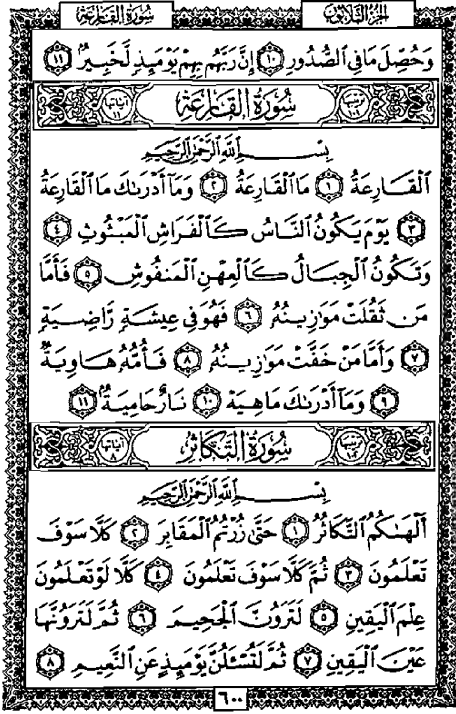 الجزء الثلاثون سورة القارعة
وَحُصِّلَ مَا فِى ٱلصُّدُورِ ١٠ إِنَّ رَبَّهُم بِهِمْ يَوْمَئِذٍ لَّخَبِيرٌۢ ١١
سُورَةُ القَارِعَةِ
بِسْمِ ٱللَّهِ ٱلرَّحْمَٰنِ ٱلرَّحِيمِ
ٱلْقَارِعَةُ ١ مَا ٱلْقَارِعَةُ ٢ وَمَآ أَدْرَىٰكَ مَا ٱلْقَارِعَةُ
٣ يَوْمَ يَكُونُ ٱلنَّاسُ كَٱلْفَرَاشِ ٱلْمَبْثُوثِ ٤
وَتَكُونُ ٱلْجِبَالُ كَٱلْعِهْنِ ٱلْمَنفُوشِ ٥ فَأَمَّا
مَن ثَقُلَتْ مَوَٰزِينُهُۥ ٦ فَهُوَ فِى عِيشَةٍ رَّاضِيَةٍ
٧ وَأَمَّا مَنْ خَفَّتْ مَوَٰزِينُهُۥ ٨ فَأُمُّهُۥ هَاوِيَةٌ
٩ وَمَآ أَدْرَىٰكَ مَا هِيَهْ ١٠ نَارٌ حَامِيَةٌۢ ١١
سُورَةُ التَّكَاثُرِ
بِسْمِ ٱللَّهِ ٱلرَّحْمَٰنِ ٱلرَّحِيمِ
أَلْهَىٰكُمُ ٱلتَّكَاثُرُ ١ حَتَّىٰ زُرْتُمُ ٱلْمَقَابِرَ ٢ كَلَّا سَوْفَ
تَعْلَمُونَ ٣ ثُمَّ كَلَّا سَوْفَ تَعْلَمُونَ ٤ كَلَّا لَوْ تَعْلَمُونَ
عِلْمَ ٱلْيَقِينِ ٥ لَتَرَوُنَّ ٱلْجَحِيمَ ٦ ثُمَّ لَتَرَوُنَّهَا
عَيْنَ ٱلْيَقِينِ ٧ ثُمَّ لَتُسْـَٔلُنَّ يَوْمَئِذٍ عَنِ ٱلنَّعِيمِ ٨
٦٠٠